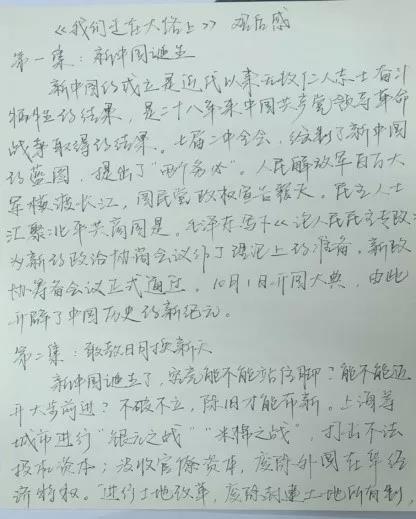 《我们走在大路上》观后感
第一集：新中国诞生
新中国的成立是近代以来无数仁人志士奋斗
牺牲的结果，是二十八年来中国共产党领导革命
战争取得的结果。七届二中全会，绘制了新中国
的蓝图，提出了"两个务必"。人民解放军百万大
军横渡长江，国民党政权宣告覆灭。民主人士
汇聚北平共商国是。毛泽东写下《论人民民主专政》
为新的政治协商会议作了理论上的准备。新政
协筹备会议正式通过。10月1日开国大典，由此
开辟了中国历史的新纪元。
第二集：敢教日月换新天
新中国诞生了，究竟能不能站住脚？能不能迈
开大步前进？不破不立，除旧才能布新。上海等
城市进行"银元之战""米棉之战"，打击不法
投机资本；没收官僚资本，废除外国在华经
济特权。进行土地改革，废除封建土地所有制，